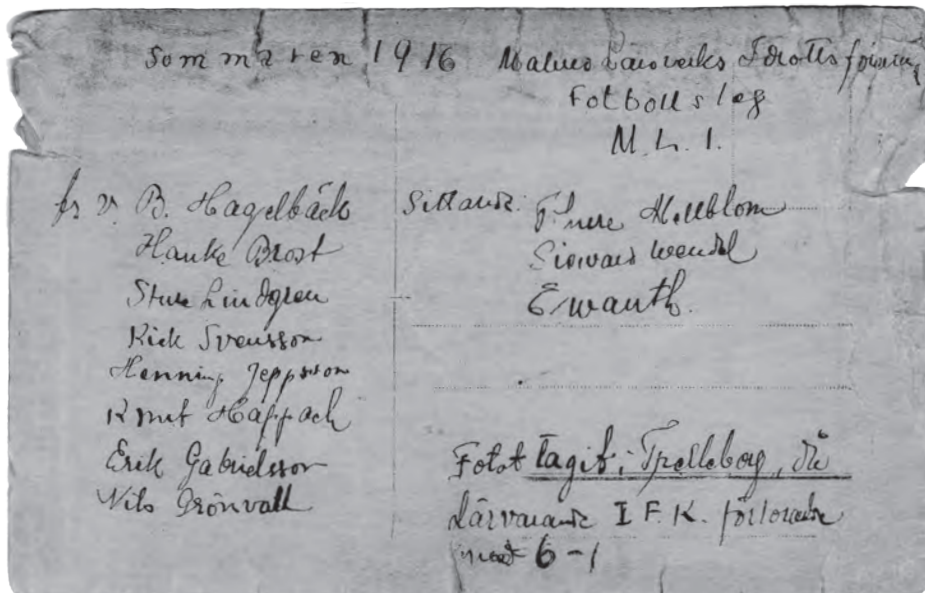 Sommaren 1916 Malmö Läroverks Idrottsförening
Fotbollslag
M. L. I.
fr v. B. Hagelbäck
Hauke Brost
Sture Lindgren
Kick Svensson
Henning Jeppsson
Knut Happach
Erik Gabrielsson
Nils Grönvall
Sittande: Mellblom
Sigvard Wendel
Ewanth.
Fotot tagit i Trelleborg, då
därvarande I F. K. förlorade
mot 6-1